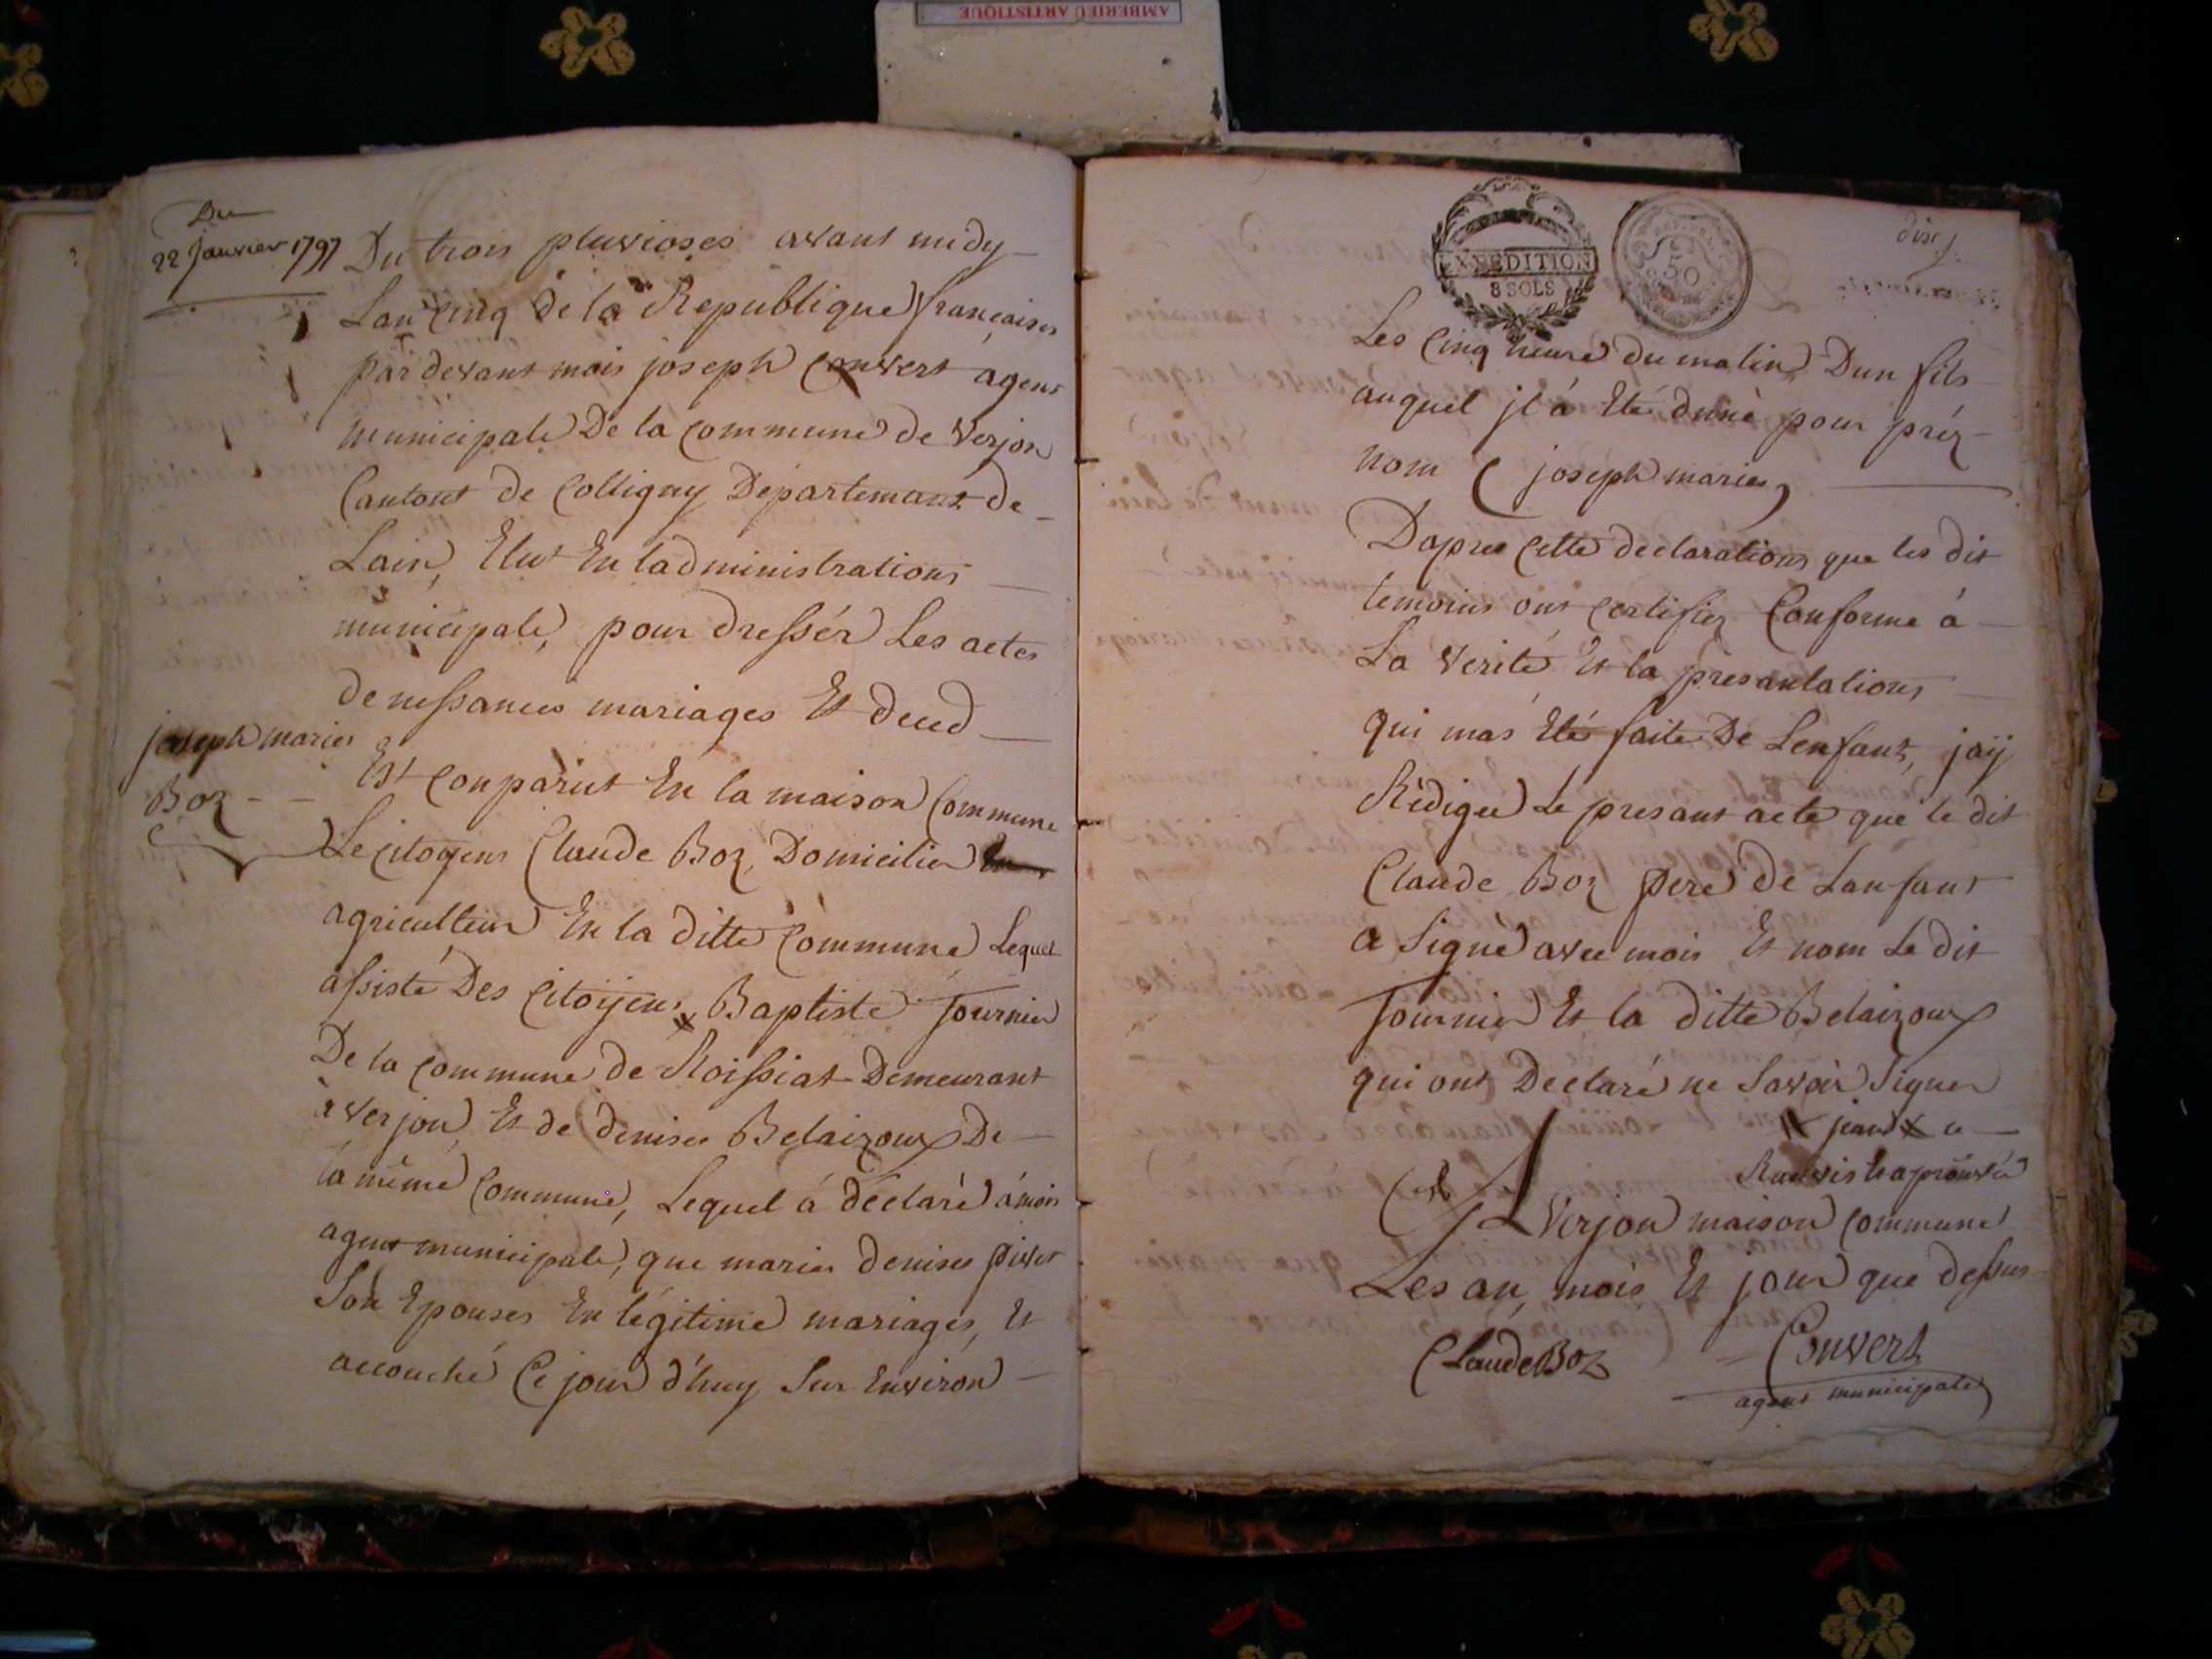 AMBERIEU ARTISTIQUE
Du
22 Janvier 1797
Du trois pluvioses avant midy
Lan Cinq de la Republique françaises
par devant mois joseph Convert agent
municipale De la Commune de Verjon
Cantont de Colligny Departemant de
Lain, Elut En ladministrations
municipale, pour dressér Les actes
de nessances mariages Et deced
joseph maries
Boz
Est Conparut En la maison Commune
Le citoyens Claude Boz, Domicilier
agriculteur En la ditte Commune Lequel
assisté Des Citoyens Baptiste fournier
De la Commune de Roissiat Demeurant
à Verjon Et de denises Belairoux De
la même Commune, Lequel á déclaré á mois
agent municipale, que maries denises pivet
Son Epouses En légitime mariages, Et
accouché Ce jour d'huy Sur Environ
EXPEDITION
8 SOLS
50
Les Cinq heure du matin Dun fils
auquel jl á Eté dunné pour préz
nom (joseph maries)
Dapres Cette declarations que les dit
temoins ont Certifiez Conforme á
La Verité Et la présantations
qui mas Eté faite De Lenfant, jaÿ
Rédigee Le presant acte que le dit
Claude Boz pere de Lanfant
a Signé avec mois Et nom Le dit
fournier Et la ditte Belairoux
qui ont Declaré ne Savoir Signer
jean
a Verjon maison Commune
Les an, mois Et jour que dessus
Claude Boz
Convert
agent municipale